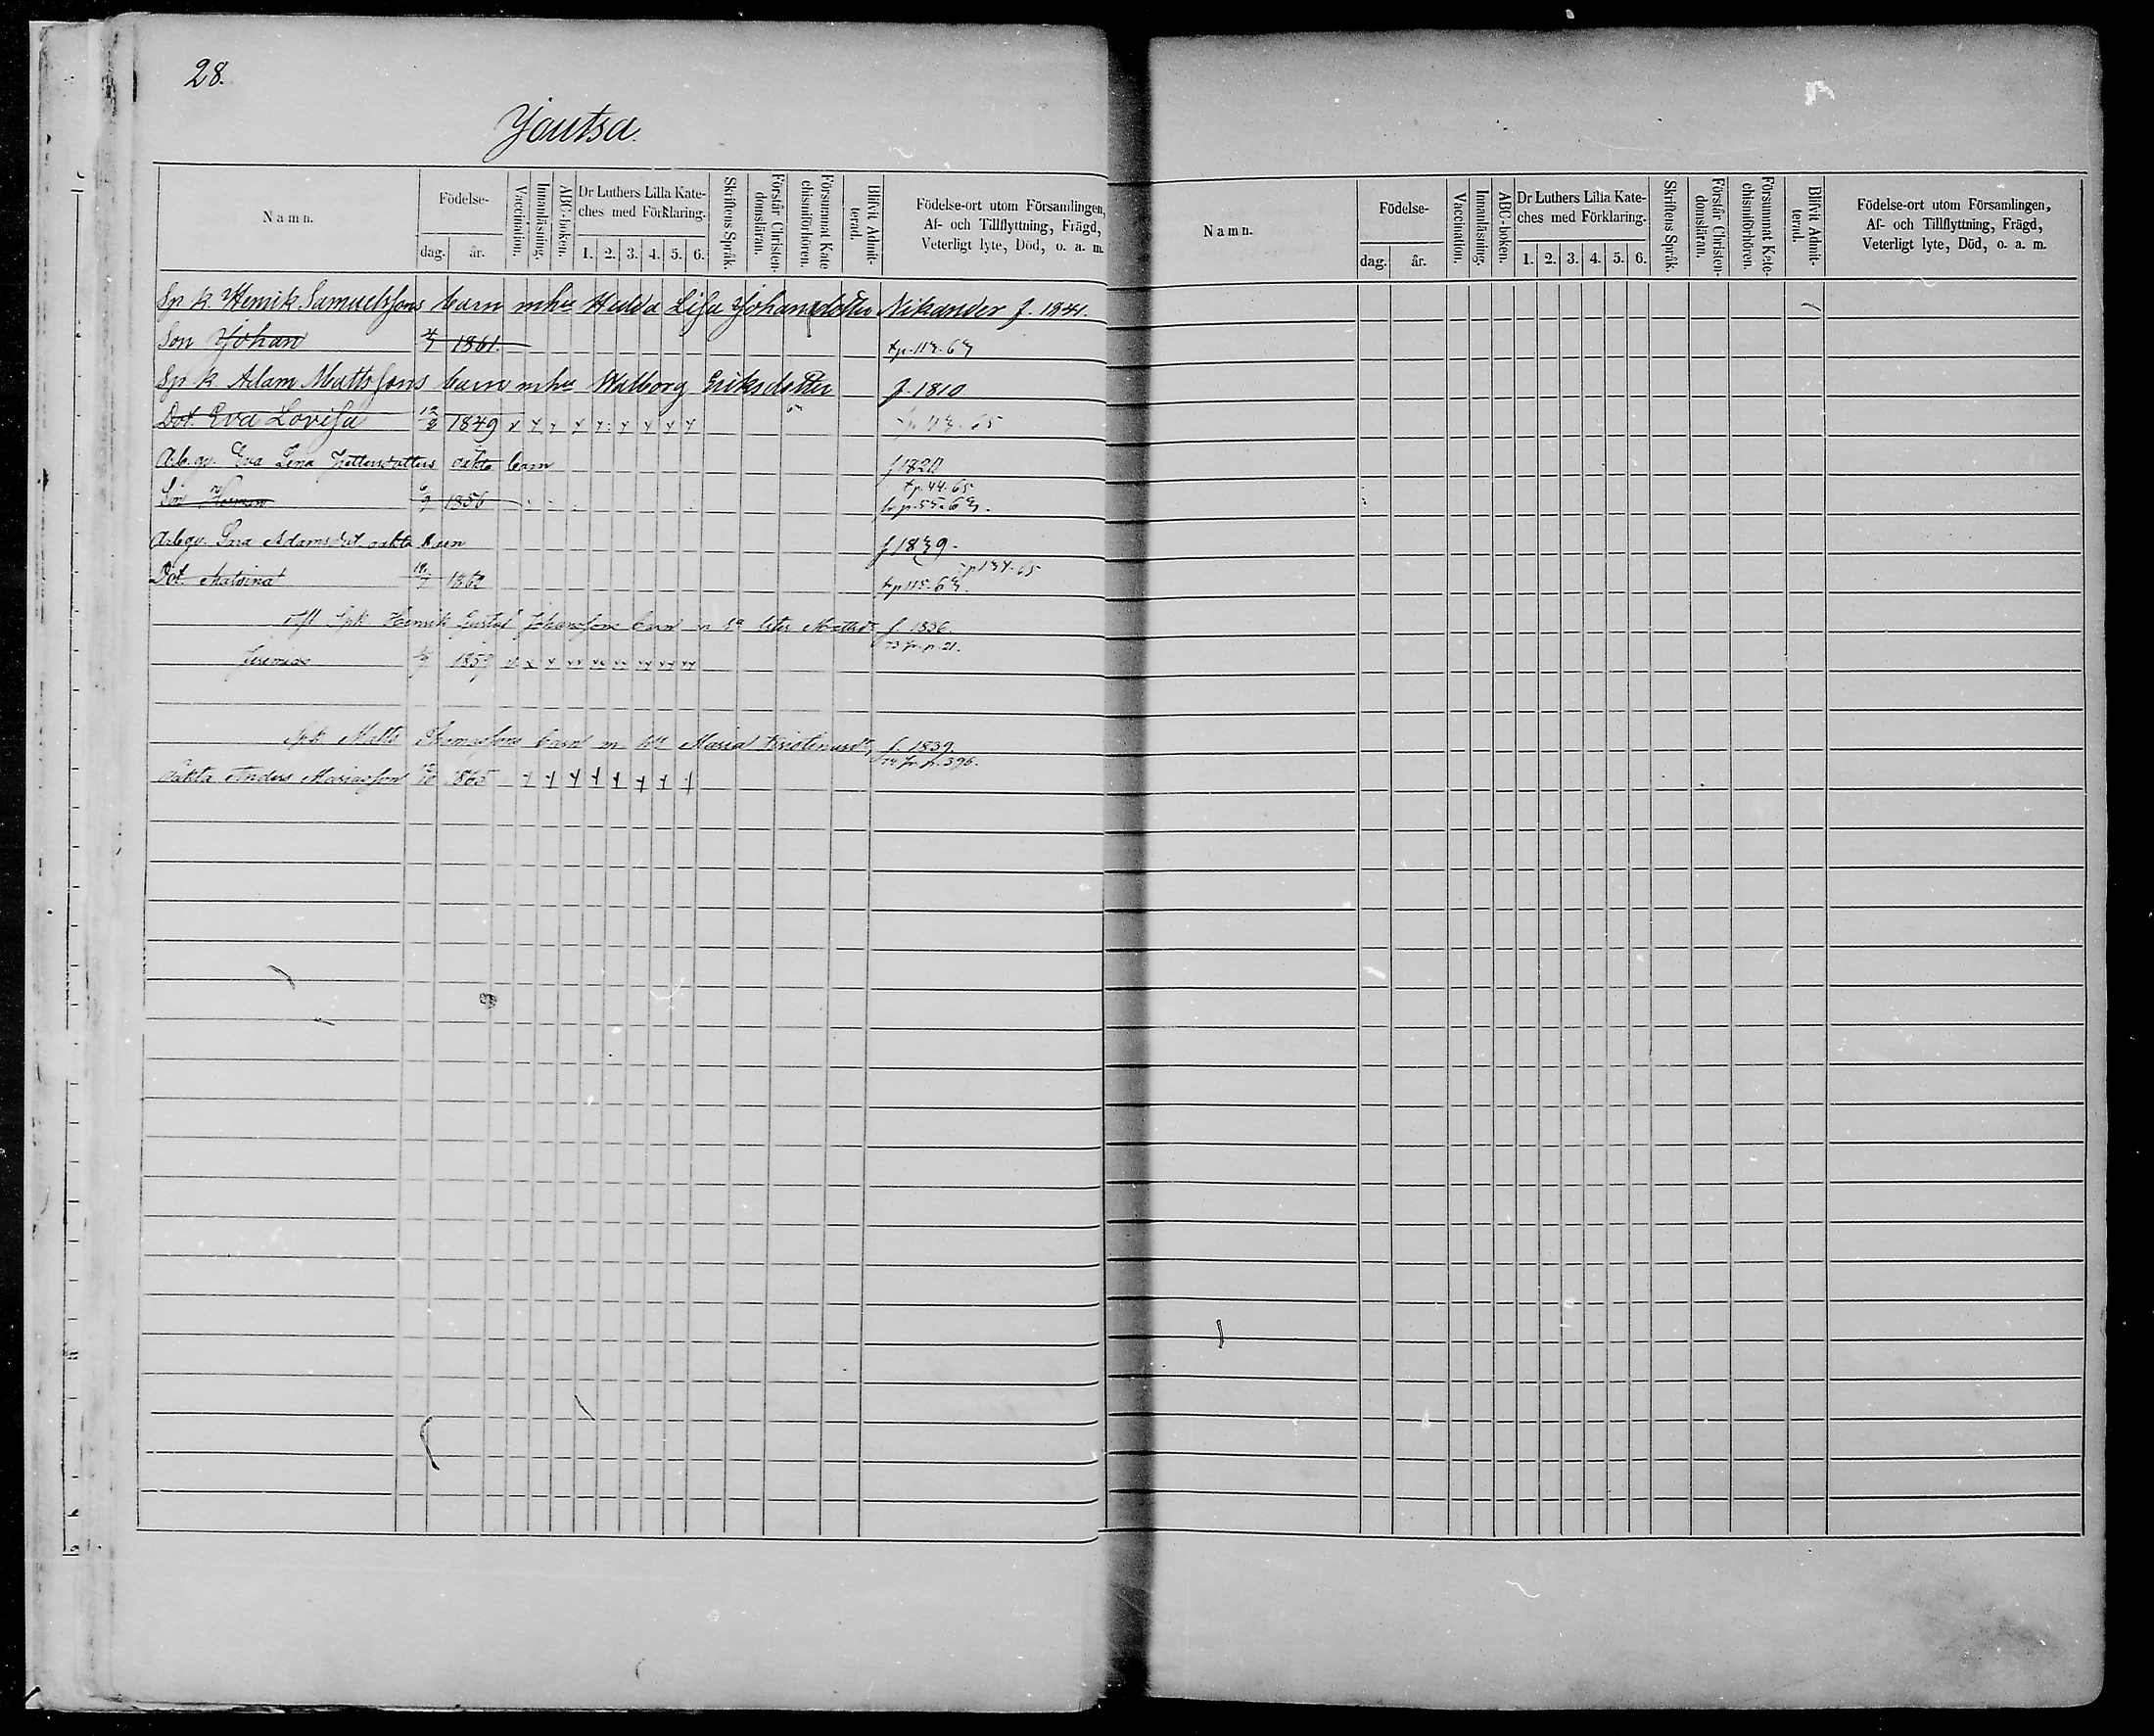 28.
Jautsa.
Namn.
Födelse-
dag.
år.
Vaccination.
Innanläsning.
ABC-boken.
Dr Luthers Lilla Kate-
ches med Förklaring.
1. 2. 3. 4. 5. 6.
Skriftens Språk.
Förstår Christen-
domsläran.
Försummat Kate
chismiförhören.
Blifvit Admit-
terad.
Födelse-ort utom Församlingen,
Af- och Tillflyttning, Frägd,
Veterligt lyte, Död, o. a. m.
Sp k. Henrik Samuelssons barn mhu Hedda Lisa Johansdotter Nikander f. 1841.
Son Johan 1861.
Sp k. Adam Mattssons barn mhu Walborg Eriksdotter f. 1810
Dot. Eva Lovisa 1849 x x x x x x x x x
Arb.qv. Eva Lena oäkta barn f 1820
tp. 44. 65
Son 6/9 1856 fr p. 55. 63.
Arbqv. Adamsdot. oäkta f 1839.
Dot. 1862
Henrik Gustaf Johanssons barn f. 1836.
73 fr. p. 21.
Jeremias 1859
Spk Matts barn m. hu Maria f. 1839.
fr. p. 396.
oäkta Anders Mariasson 1865 x x x x x x x x
Namn.
Födelse-
dag.
år.
Vaccination.
Innanläsning.
ABC-boken.
Dr Luthers Lilla Kate-
ches med Förklaring.
1. 2. 3. 4. 5. 6.
Skriftens Språk.
Förstår Christen-
domsläran.
Försummat Kate-
chismiförhören.
Blifvit Admit-
terad.
Födelse-ort utom Församlingen,
Af- och Tillflyttning, Frägd,
Veterligt lyte, Död, o. a. m.